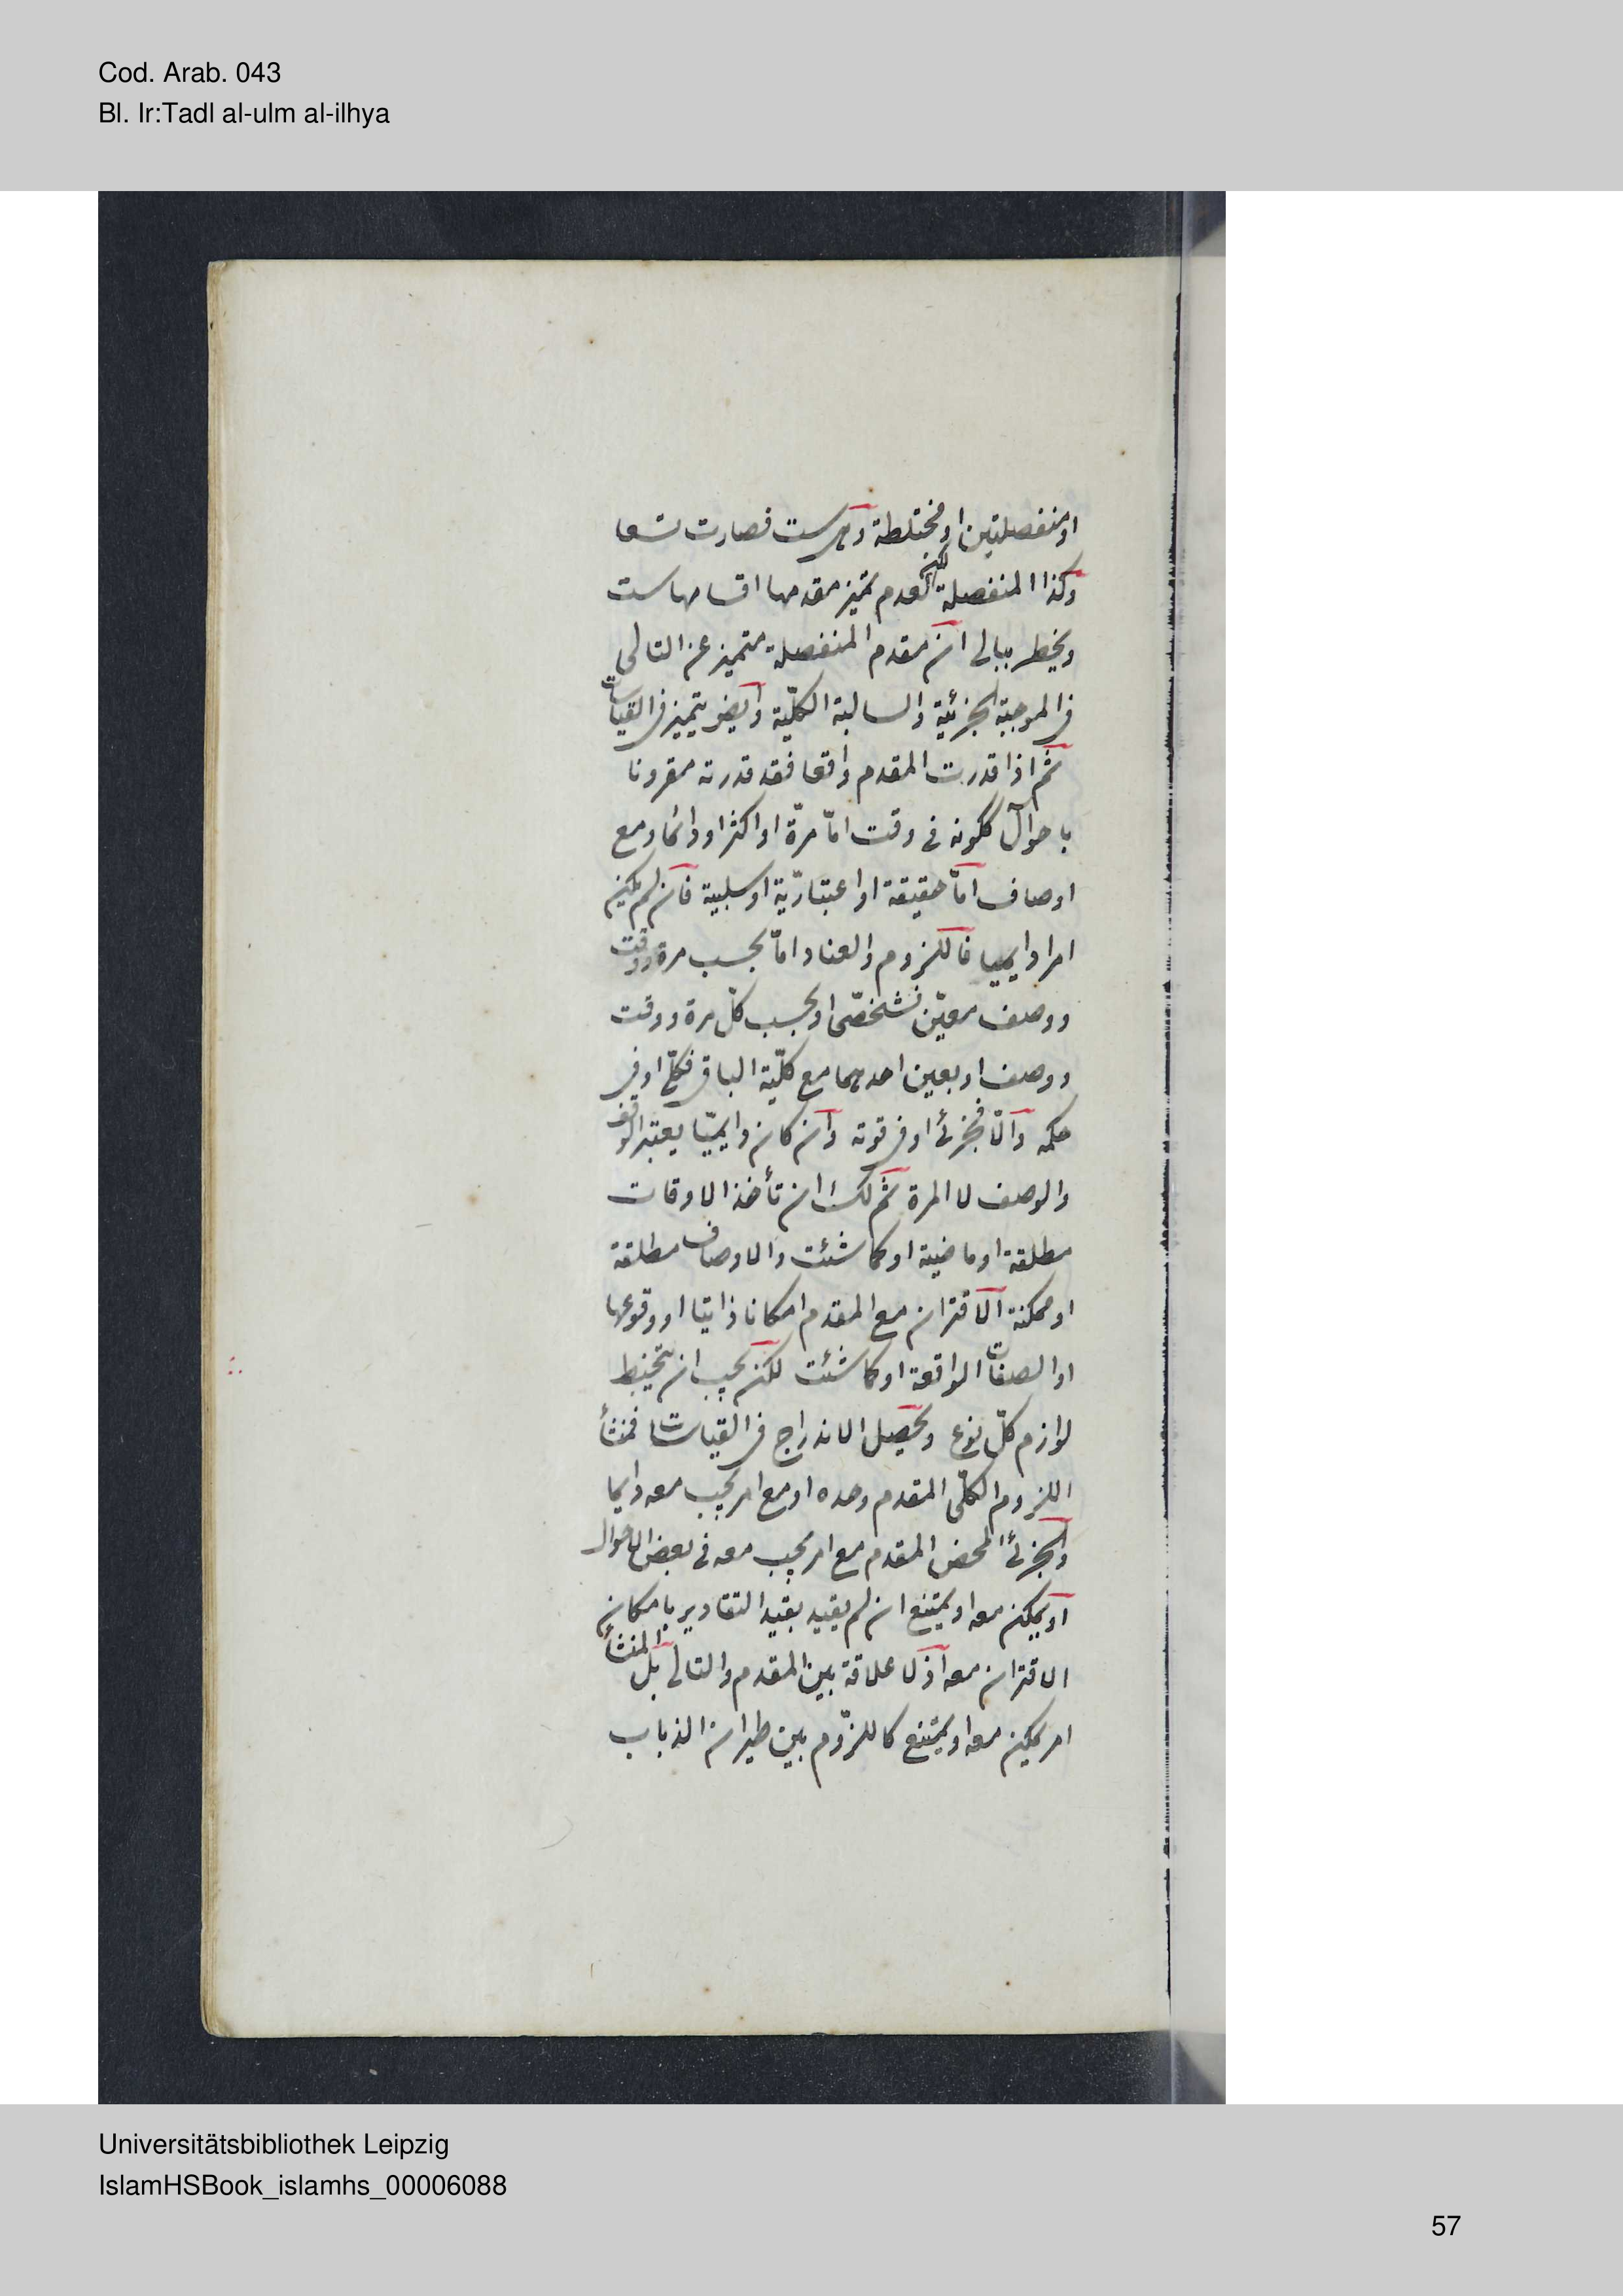 Cod. Arab. 043
Bl. Ir:Tadl al-ulm al-ilhya
او منفصلتين او مختلطة وهى ست فصارت تسعا
وكذا المنفصلة لكن لعدم تميز مقدمها اقسامها ست
ويخطر ببالى ان مقدم المنفصلة متميز عن التالى
فى الموجبة الجزئية والسالبة الكلّية وايضا يتميز فى القياسات
ثم اذا قدرت المقدم واقعا فقد قدرته مقرونا
باحوال ككونه فى وقت امّا مرّة او اكثر او دائما ومع
اوصاف امّا حقيقة او اعتباريّة او سلبية فان لم يكن
امرا دايميا فاللزوم والعناد امّا بحسب مرة ووقت
ووصف معيّن فشخصّى او بحسب كلّ مرة ووقت
ووصف او بعين احدهما مع كلّية الباقى فكلّى او فى
حكمه والّا فجزئى او فى قوته وان كان دايميّا يعتبر الوقت
والوصف لا المرة ثم لك ان تأخذ الاوقات
مطلقة او ماضية او كما شئت والاوصاف مطلقة
او ممكنة الاقتران مع المقدم امكانا ذاتيا او وقوعها
او الصفات الواقعة او كما شئت لكن يجب ان
لوازم كلّ نوع ويحصل الاندراج فى القياسات فمنشأ
اللزوم الكلّى المقدم وحده او مع امر يجب معه دايما
والجزئى المحض المقدم مع امر يجب معه فى بعض الاحوال
او يمكن معه او يمتنع ان لم يقيد بقيد التقادير بامكان
الاقتران معه اذ لا علاقة بين المقدم والتالى بل المنشأ
امر يمكن معه او يمتنع كاللزوم بين طيران الذباب
Universitätsbibliothek Leipzig
IslamHSBook_islamhs_00006088
57